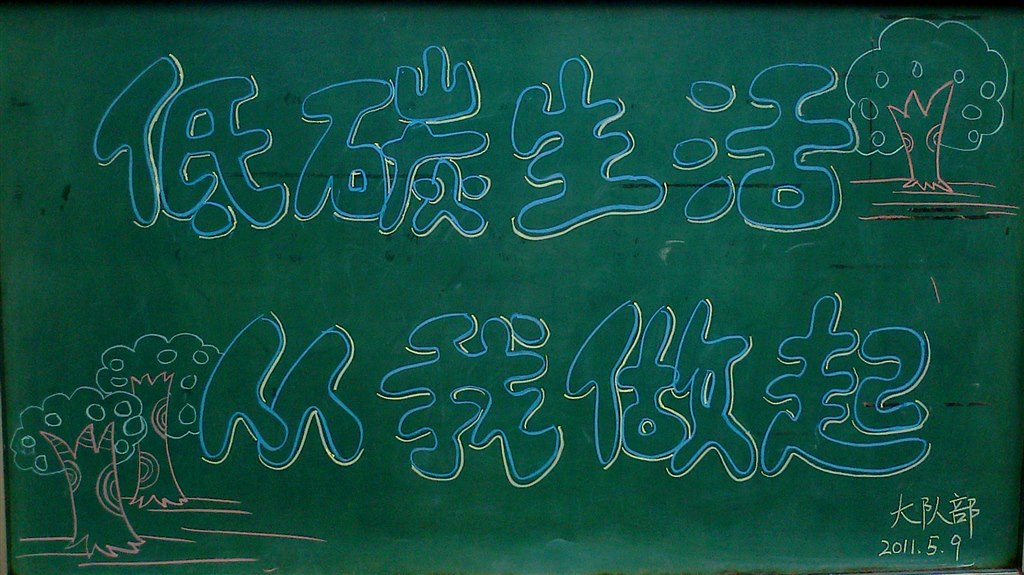 低碳生活
从我做起
大队部
2011.5.9